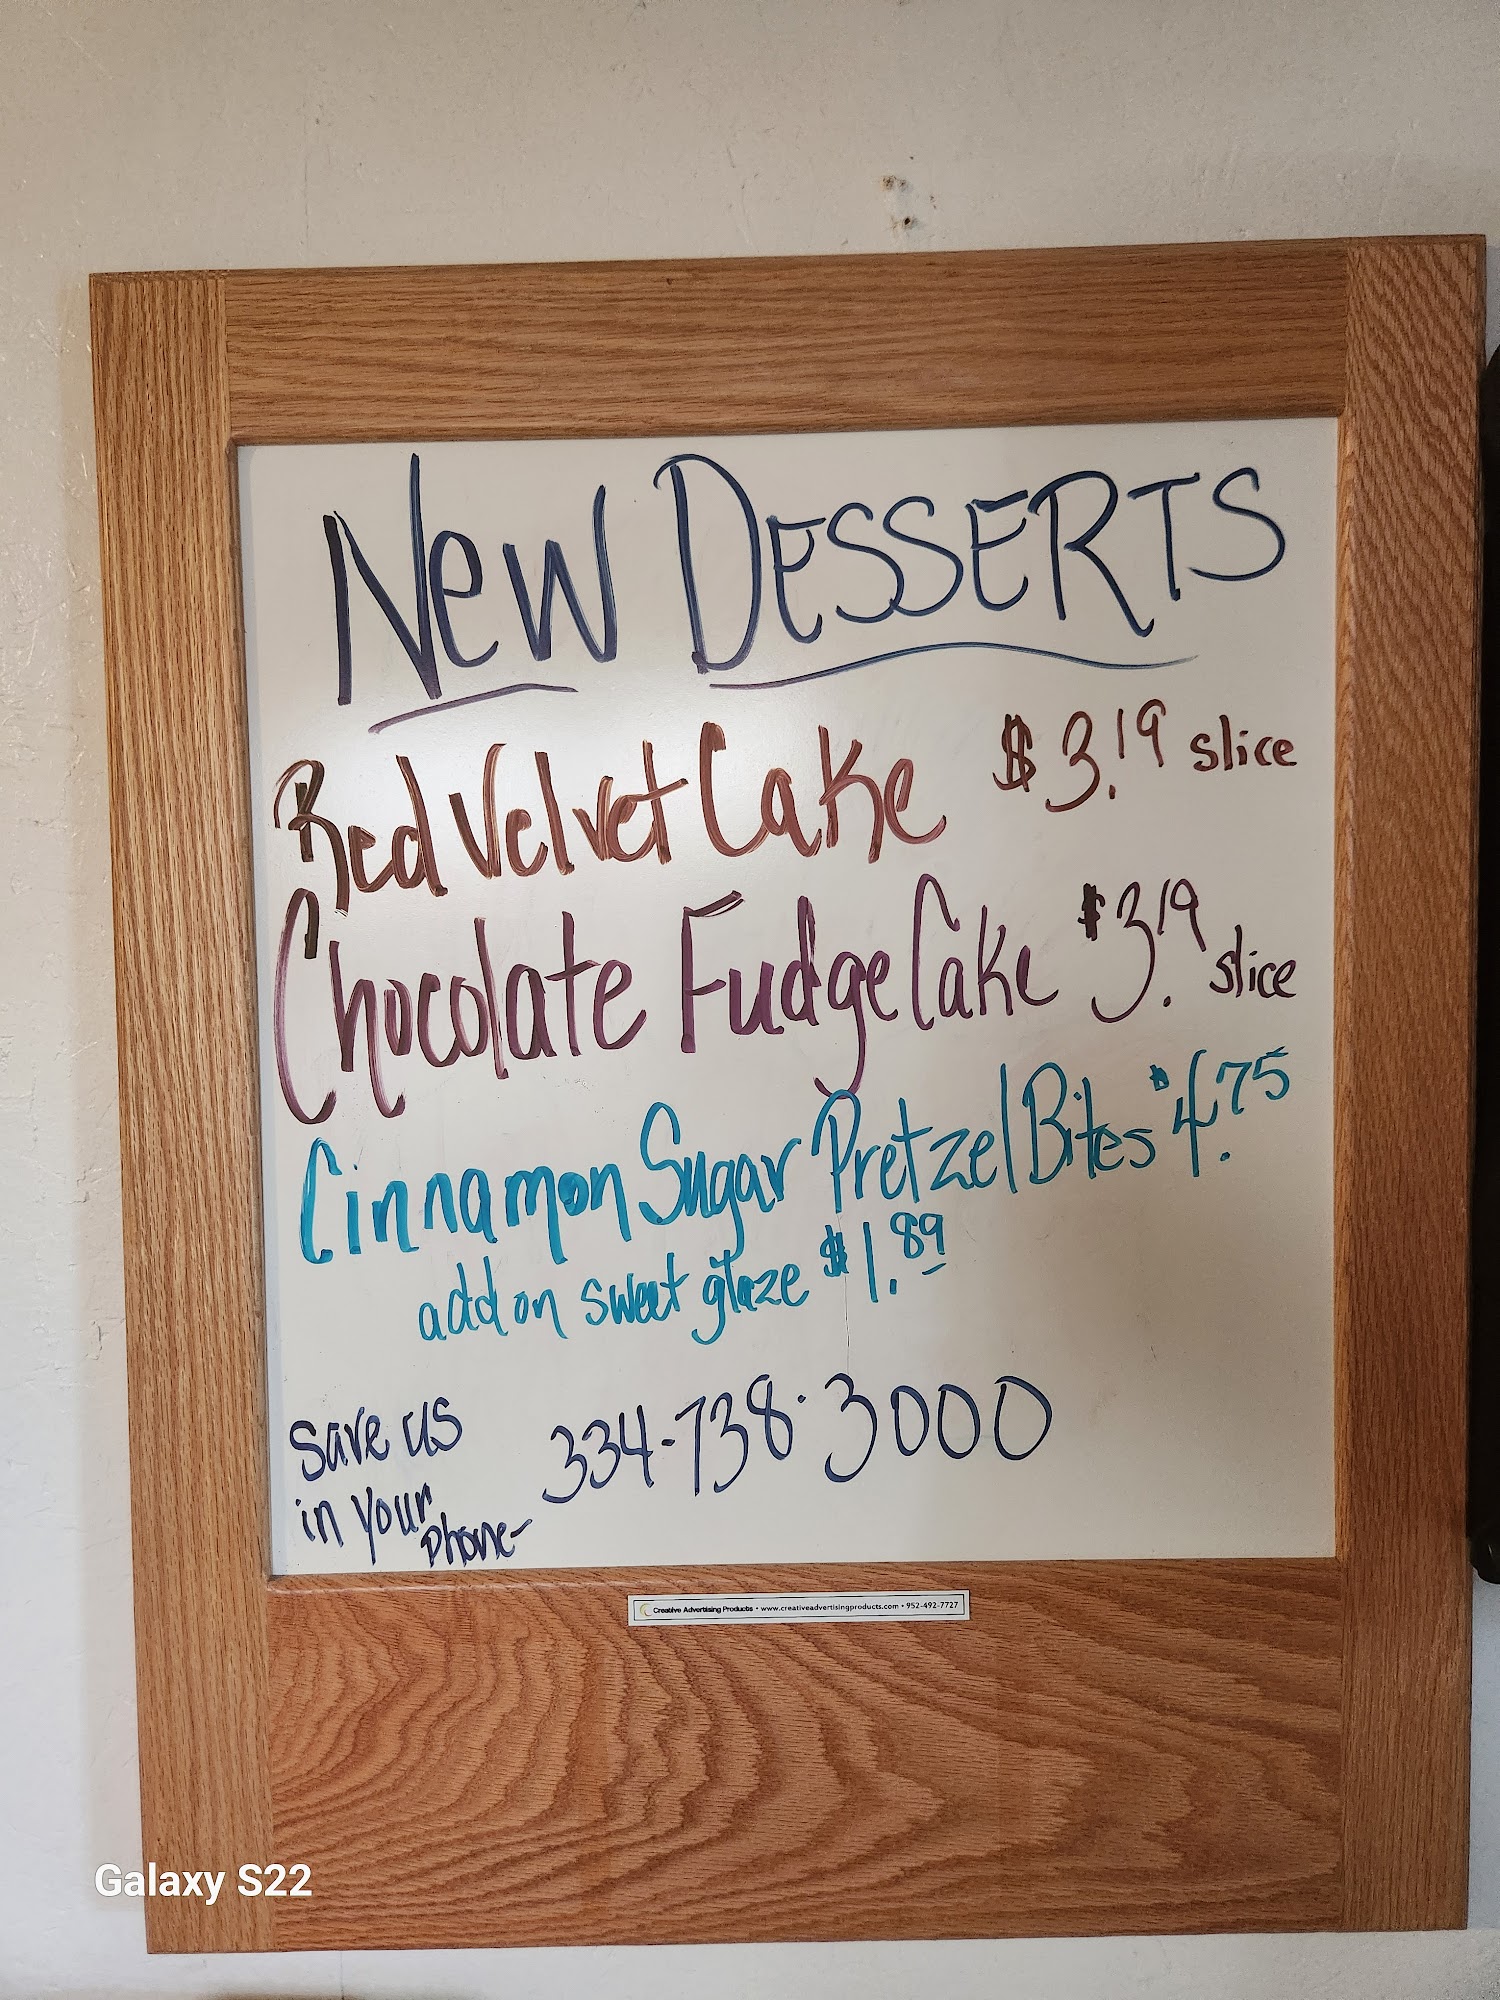 New Desserts
Red Velvet Cake $3.19 slice
Chocolate Fudge Cake $3.19 slice
Cinnamon Sugar Pretzel Bites $4.75
add on sweet glaze $1.89
save us
in your
phone-
334-738-3000
Creative Advertising Products • www.creativeadvertisingproducts.com • 952-492-7727
Galaxy S22